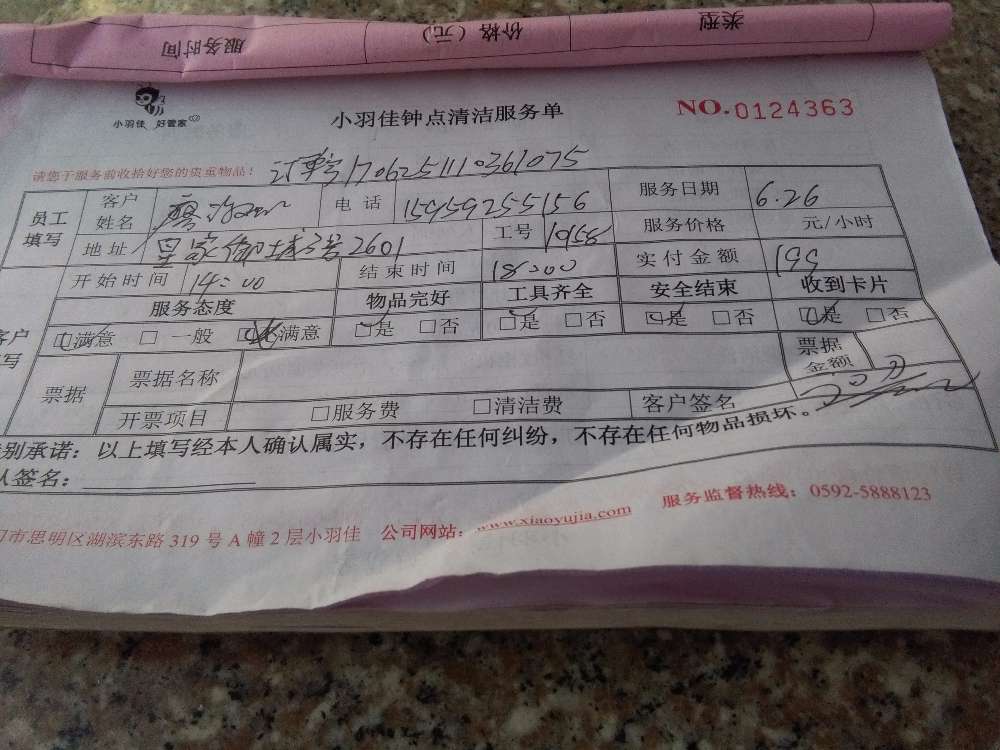 服务时间 价格（元） 类型
小羽佳 好管家
小羽佳钟点清洁服务单
NO.0124363
请您于服务前收拾好您的贵重物品！
订单号1706251110361075
员工填写 客户姓名 廖 电话 15959255156 服务日期 6.26
地址 皇家御城 2601 工号 1958 服务价格 元/小时
开始时间 14:00 结束时间 18:00 实付金额 199
客户 写 服务态度 物品完好 工具齐全 安全结束 收到卡片
□满意 □一般 满意 □是 □否 □是 □否 □是 □否 □是 □否
票据 票据名称 票据金额
开票项目 □服务费 □清洁费 客户签名
别承诺：以上填写经本人确认属实，不存在任何纠纷，不存在任何物品损坏。
人签名：
市思明区湖滨东路319号A幢2层小羽佳 公司网站：www.xiaoyujia.com 服务监督热线：0592-5888123